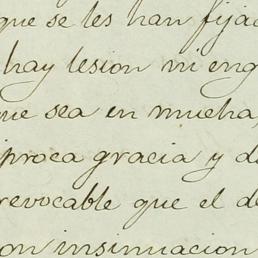 que se les han fijad
hay lesion ni eng
que sea en mucha,
iproca gracia y d
revocable que el de
on insinuacion